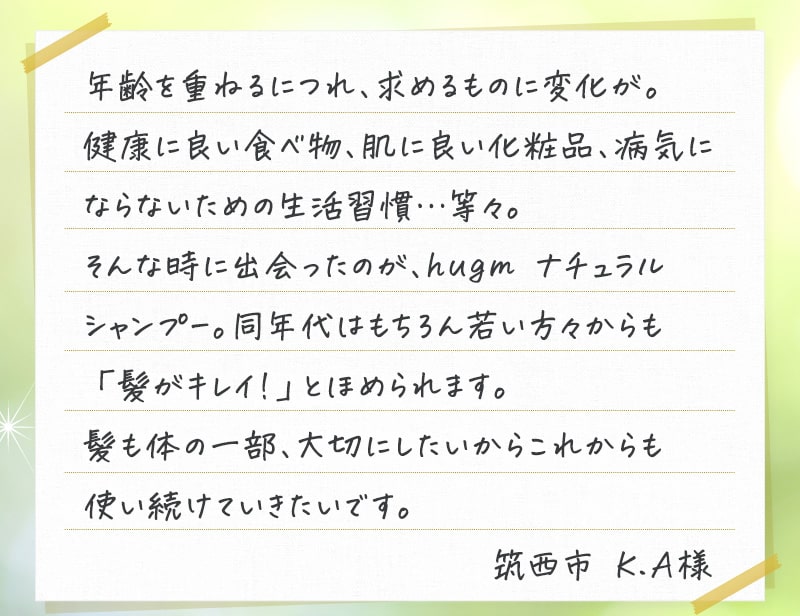 年齢を重ねるにつれ、求めるものに変化が。
健康に良い食べ物、肌に良い化粧品、病気に
ならないための生活習慣…等々。
そんな時に出会ったのが、hugm ナチュラル
シャンプー。同年代はもちろん若い方々からも
「髪がキレイ!」とほめられます。
髪も体の一部、大切にしたいからこれからも
使い続けていきたいです。
筑西市 K.A様